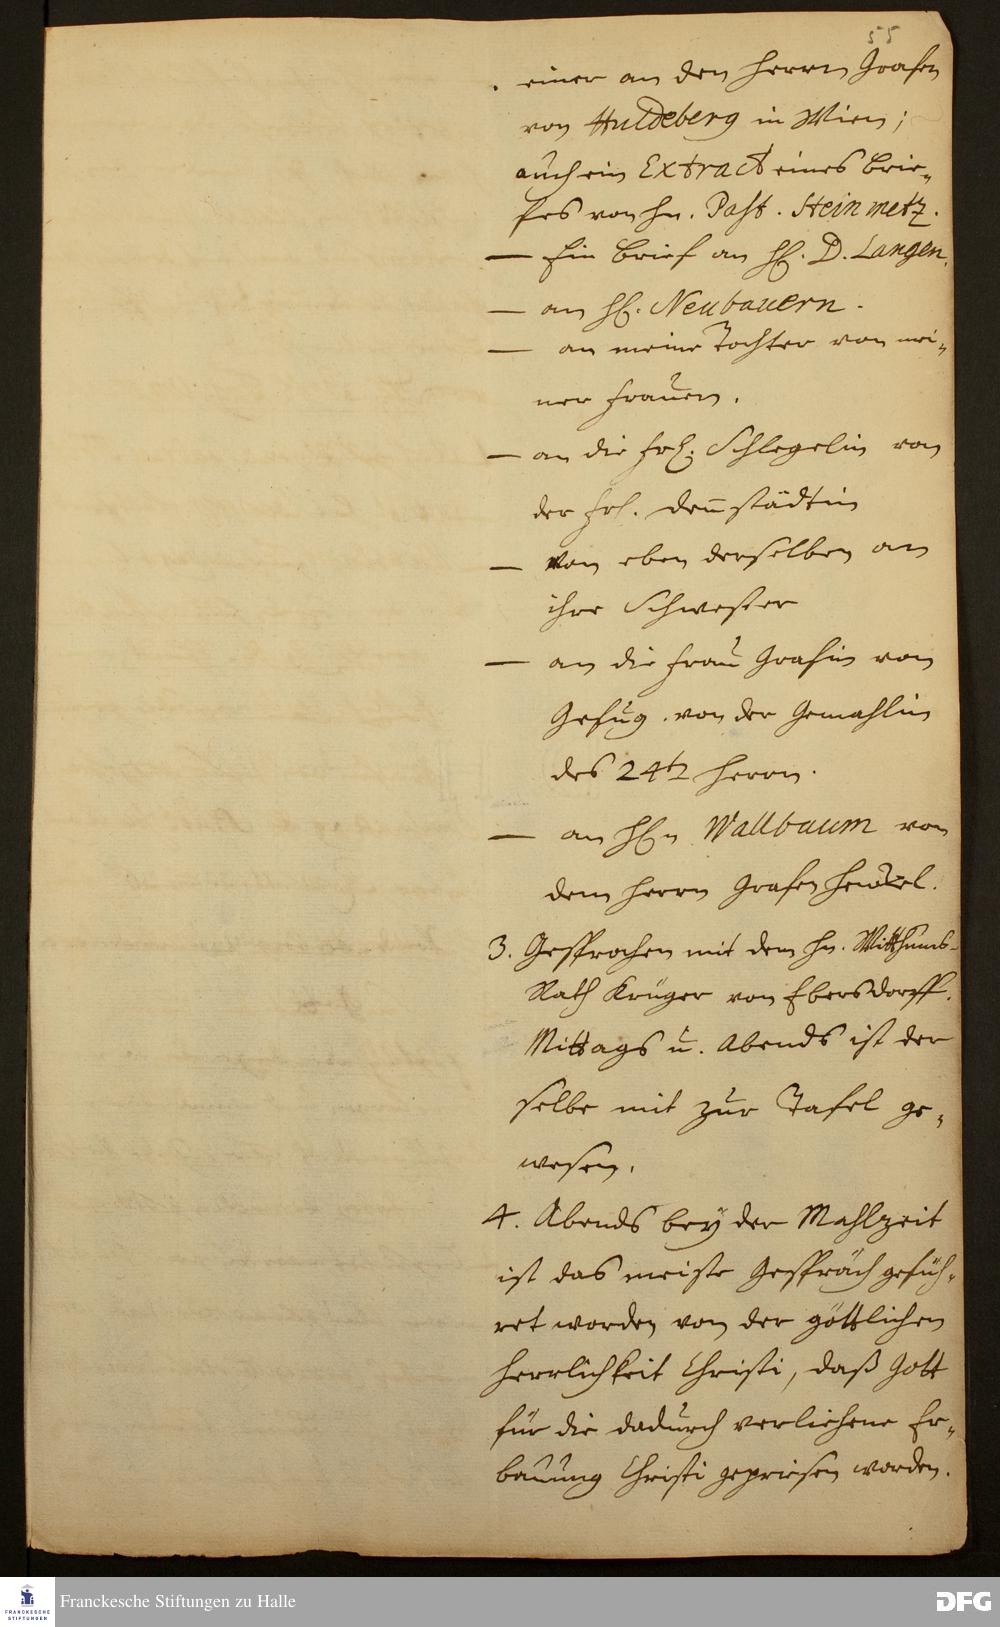 55
einer an den Herrn Grafen
von Huldeberg in Wien;
auch ein Extract eines Brie-
fes von Hn. Past. Steinmetz.
— Ein Brief an H. D. Langen.
— an H. Neubauern.
— an meine Tochter von mei-
ner Frauen.
— an die Frl. Schlegelin von
der Frl. Dennstädtin
— Von eben derselben an
ihre Schwester
— an die Frau Gräfin von
Gersdorf von der Gemahlin
des 24t Herrn.
— an HEn Wallbaum von
dem Herrn Grafen Henckel.
3. Gesprochen mit dem Hn. Witthums-
Rath Krüger von Ebersdorff.
Mittags u. Abends ist der
selbe mit zur Tafel ge-
wesen.
4. Abends bey der Mahlzeit
ist das meiste Gespräch gefüh-
ret worden von der göttlichen
Herrlichkeit Christi, daß Gott
für die dadurch verliehene Er-
bauung Christi gepriesen worden.
FRANCKESCHE
STIFTUNGEN
Franckesche Stiftungen zu Halle
DFG